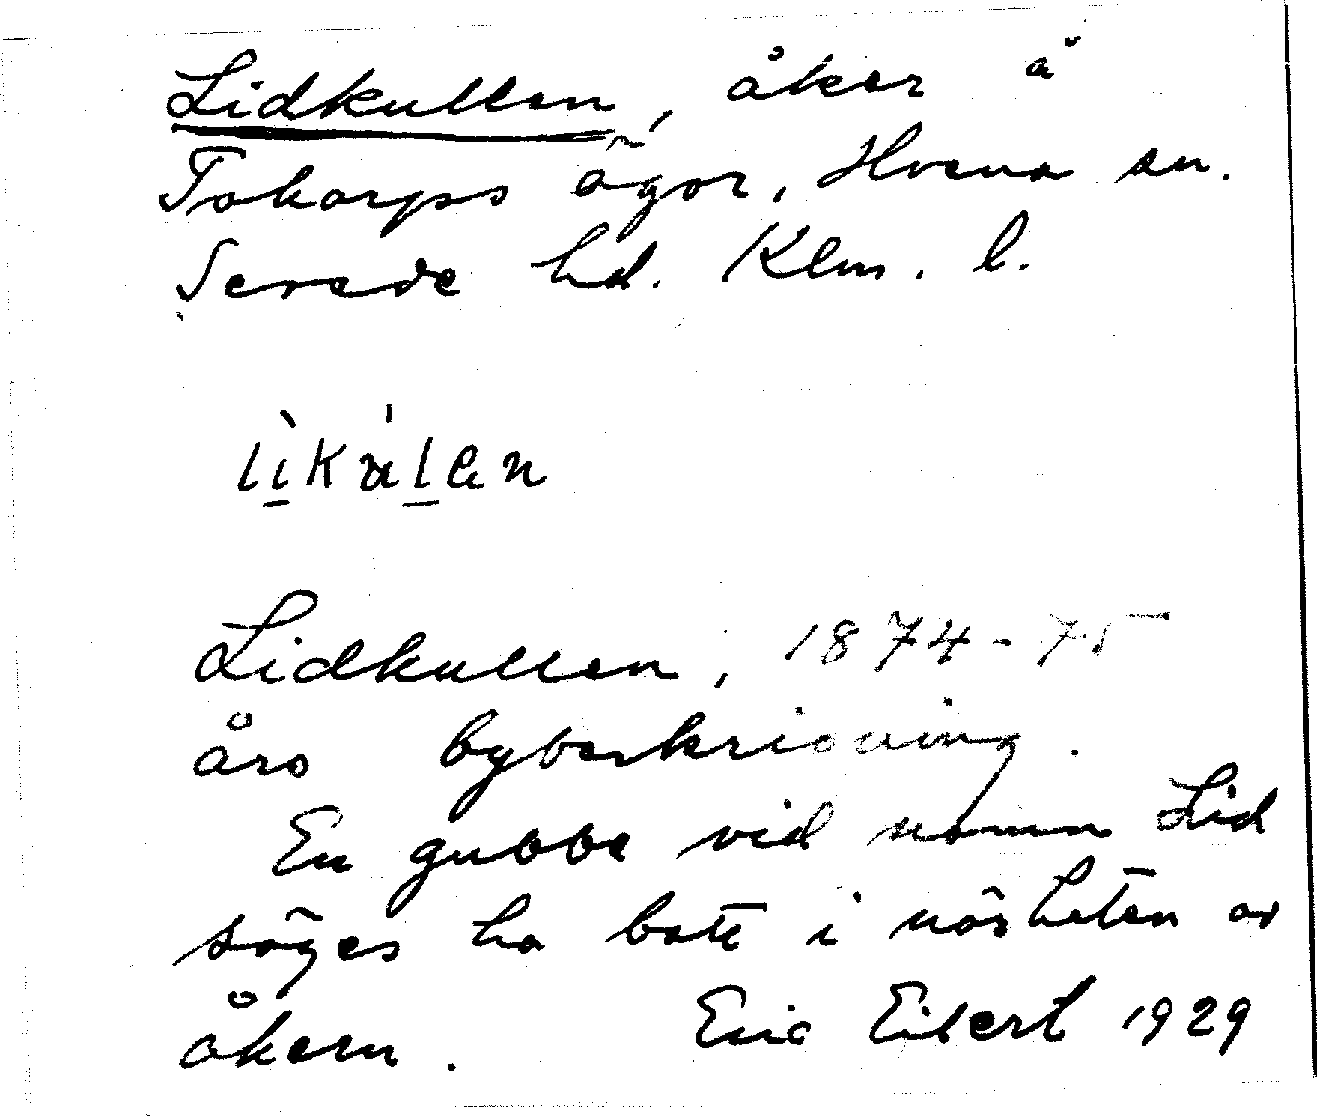 Lidkullen, åker å
Tokarps ägor, Hvena sn.
Sevede hd. Klm. l.
lìkálen
Lidkullen, 1874-75
års bybeskrivning.
En gubbe vid namn Lid
säges ha bott i närheten av
åkern. Eric Eilert 1929